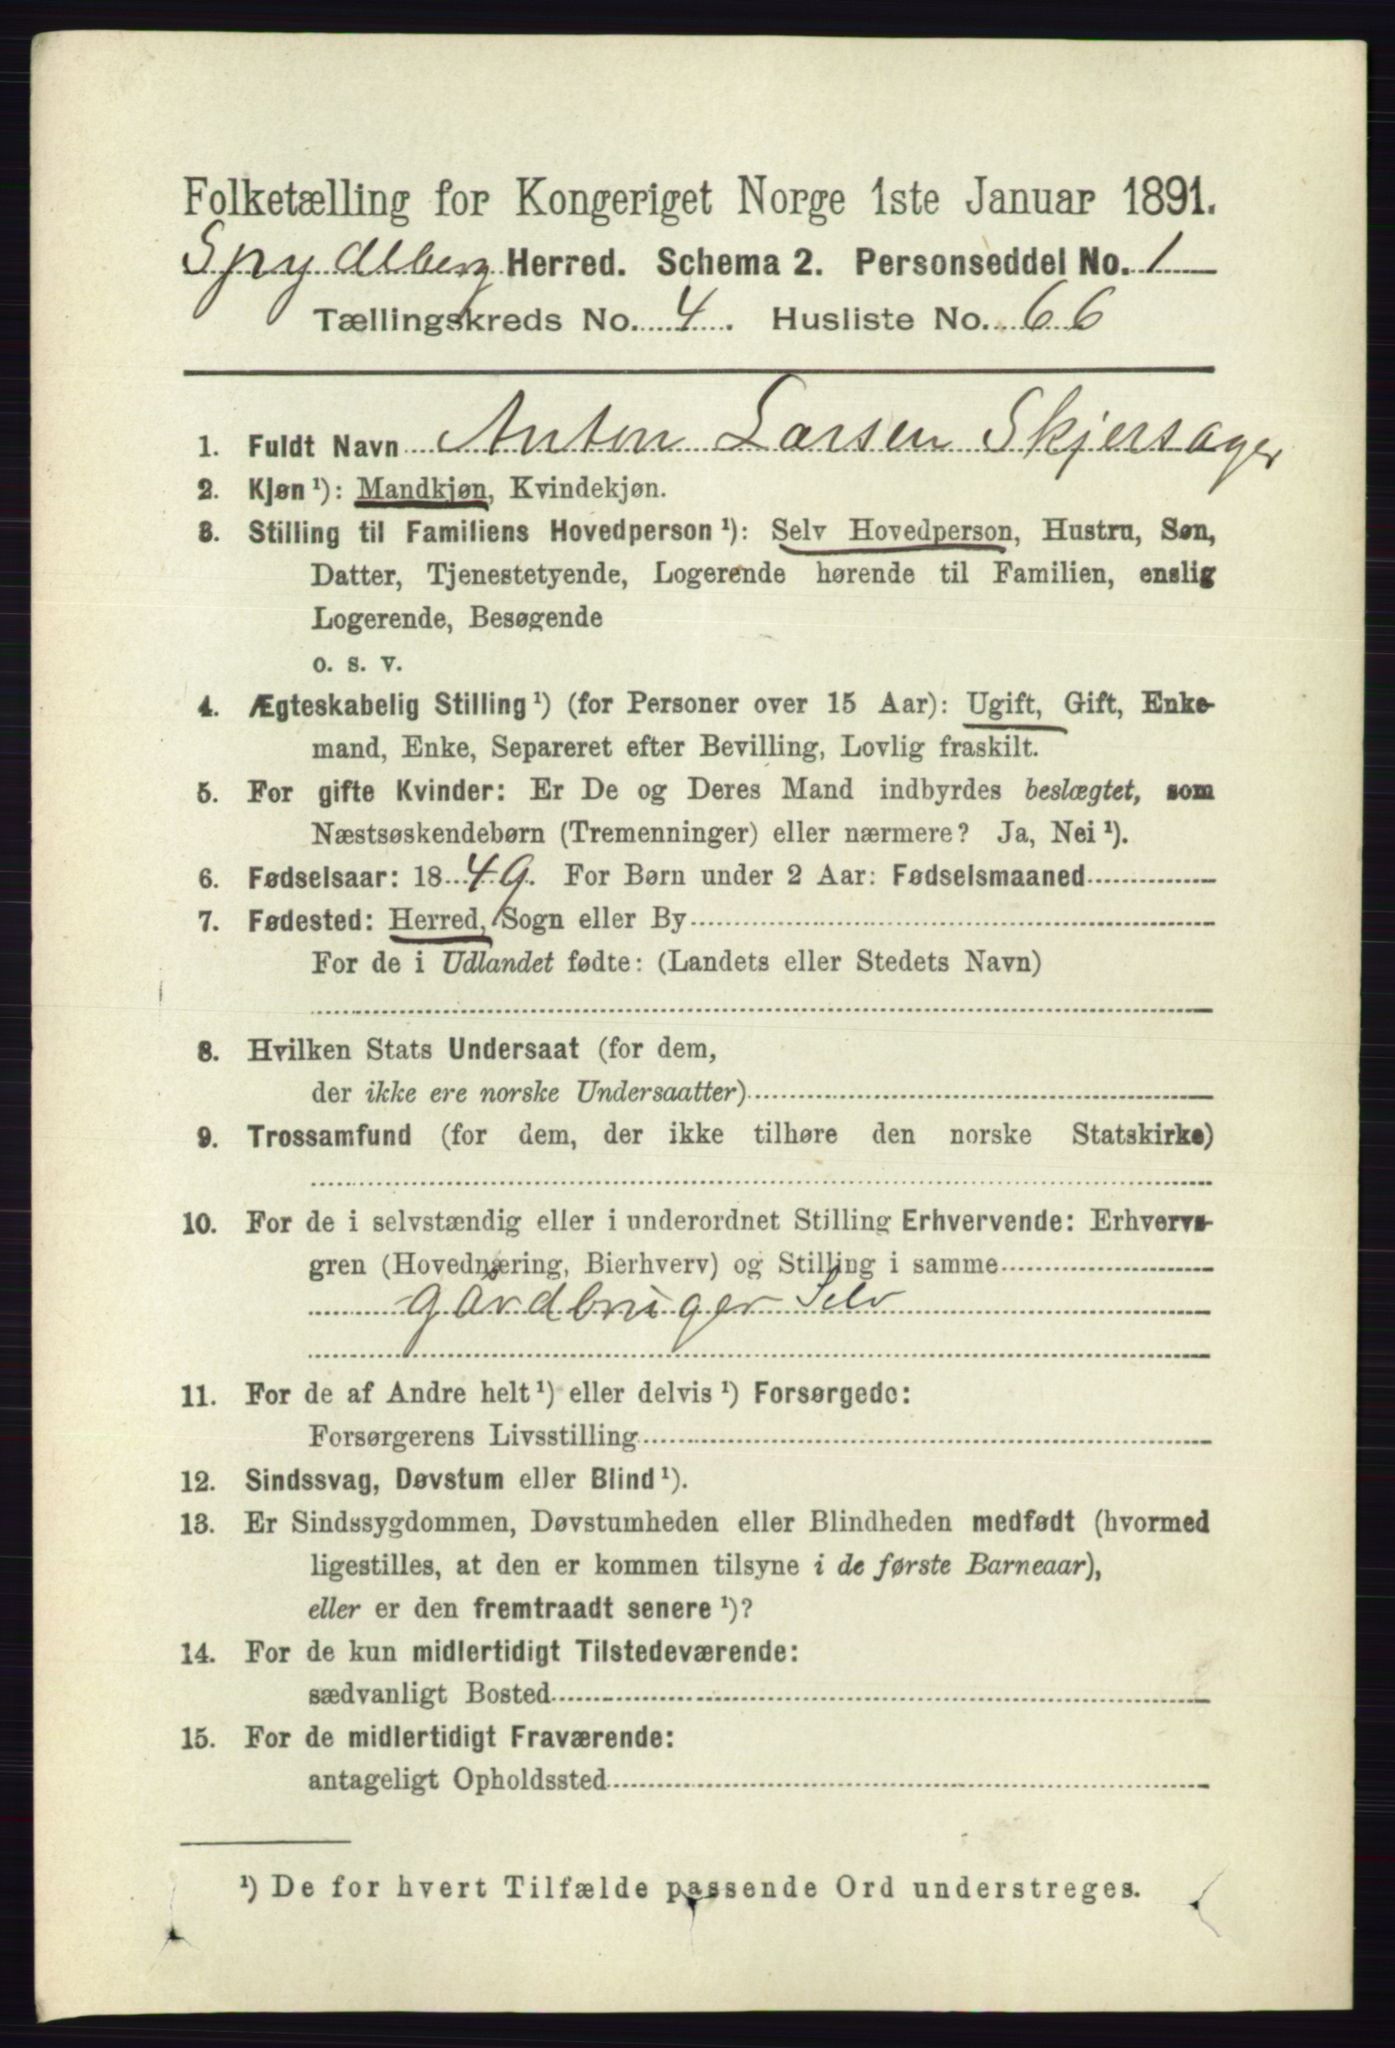 Folketælling for Kongeriget Norge 1ste Januar 1891.
Spydeberg Herred. Schema 2. Personseddel No. 1
Tællingskreds No. 4. Husliste No. 66
1. Fuldt Navn Anton Larsen Skjersager
2. Kjøn ¹): Mandkjøn, Kvindekjøn.
3. Stilling til Familiens Hovedperson ¹): Selv Hovedperson, Hustru, Søn,
Datter, Tjenestetyende, Logerende hørende til Familien, enslig
Logerende, Besøgende
o. s. v.
4. Ægteskabelig Stilling ¹) (for Personer over 15 Aar): Ugift, Gift, Enke-
mand, Enke, Separeret efter Bevilling, Lovlig fraskilt.
5. For gifte Kvinder: Er De og Deres Mand indbyrdes beslægtet, som
Næstsøskendebørn (Tremenninger) eller nærmere? Ja, Nei ¹).
6. Fødselsaar: 1849. For Børn under 2 Aar: Fødselsmaaned
7. Fødested: Herred, Sogn eller By
For de i Udlandet fødte: (Landets eller Stedets Navn)
8. Hvilken Stats Undersaat (for dem,
der ikke ere norske Undersaatter)
9. Trossamfund (for dem, der ikke tilhøre den norske Statskirke)
10. For de i selvstændig eller i underordnet Stilling Erhvervende: Erhvervs-
gren (Hovednæring, Bierhverv) og Stilling i samme
Gårdbruger Selv
11. For de af Andre helt ¹) eller delvis ¹) Forsørgede:
Forsørgerens Livsstilling
12. Sindssvag, Døvstum eller Blind ¹).
13. Er Sindssygdommen, Døvstumheden eller Blindheden medfødt (hvormed
ligestilles, at den er kommen tilsyne i de første Barneaar),
eller er den fremtraadt senere ¹)?
14. For de kun midlertidigt Tilstedeværende:
sædvanligt Bosted
15. For de midlertidigt Fraværende:
antageligt Opholdssted
¹) De for hvert Tilfælde passende Ord understreges.